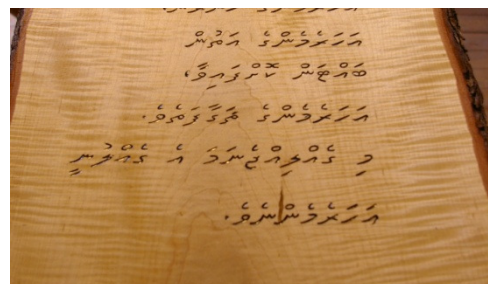 އަހަރެމެންގެ އަތުން
ބައްޓަން ކޮށްފައިވާ،
އަހަރެމެންގެ ޘަޤާފަތެވެ.
މި ގެއްލިއްޖެނަމަ އެ ގެއްލުނީ
އަހަރެމެންނެވެ.